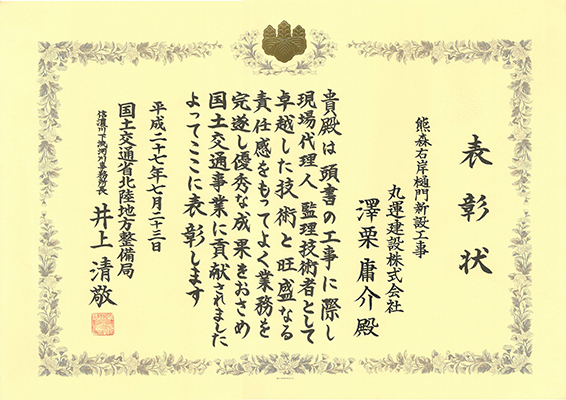 表彰状
熊森右岸樋門新設工事
丸運建設株式会社
澤栗庸介殿
貴殿は頭書の工事に際し
現場代理人、監理技術者として
卓越した技術と旺盛なる
責任感をもってよく業務を
完遂し優秀な成果をおさめ
国土交通事業に貢献されました
よってここに表彰します
平成二十七年七月二十三日
国土交通省北陸地方整備局
信濃川下流河川事務所長 井上清敬